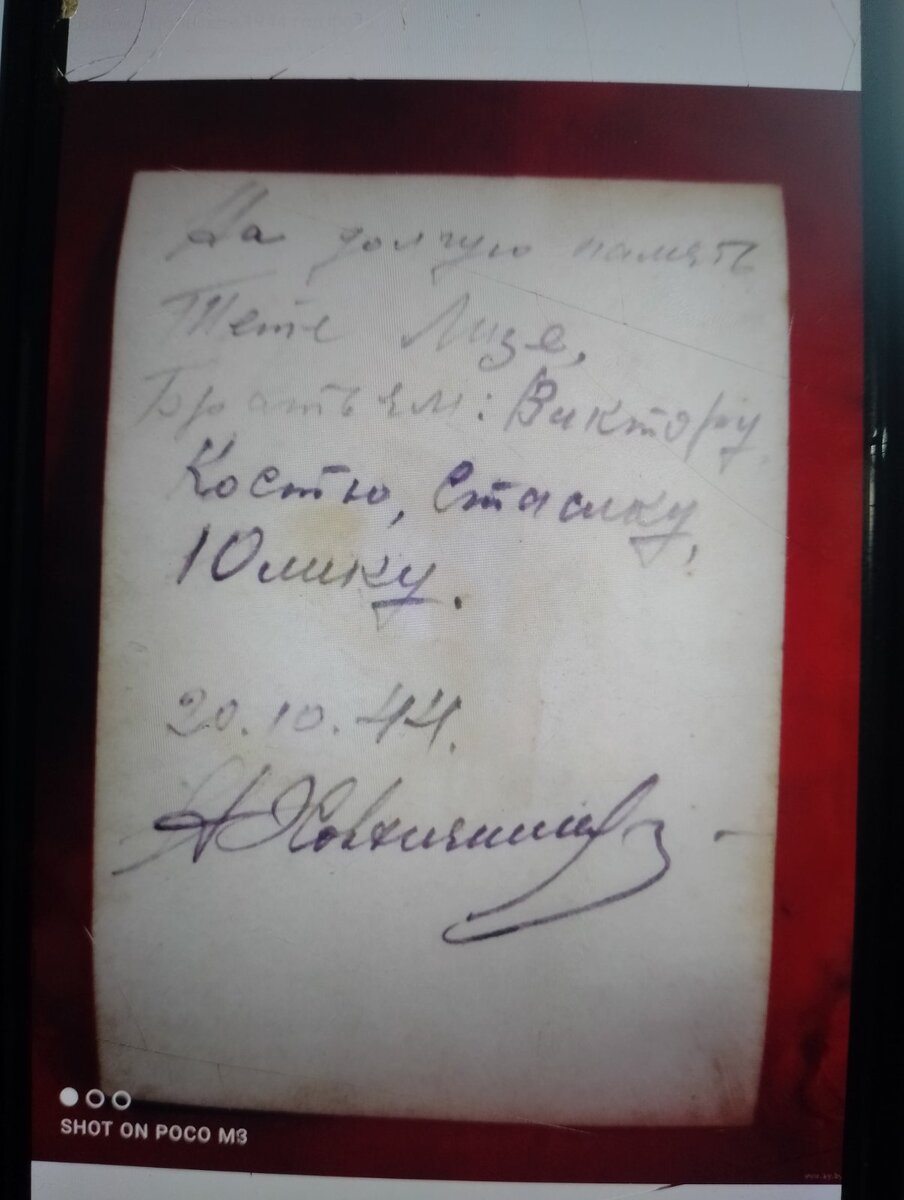 На долгую память
Тете Лизе,
Братьям: Виктору,
Костю, Стасику,
Юлику.
20.10.44.
SHOT ON POCO M3